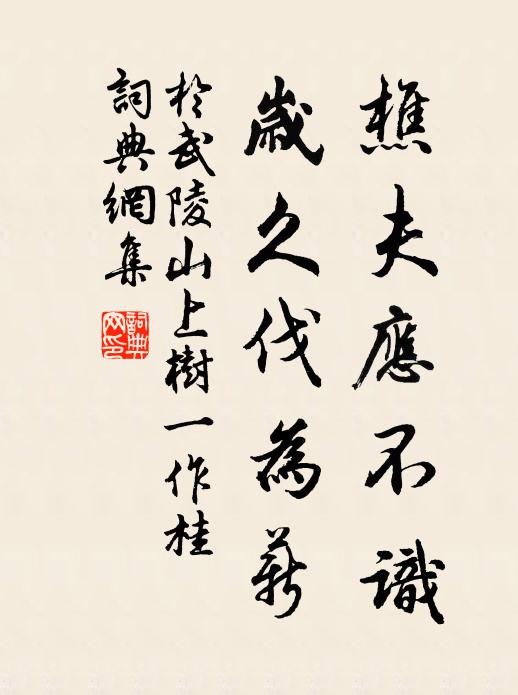 樵夫應不識
歲久伐為薪
於武陵山上樹一作桂
詞典網集
詞典網印